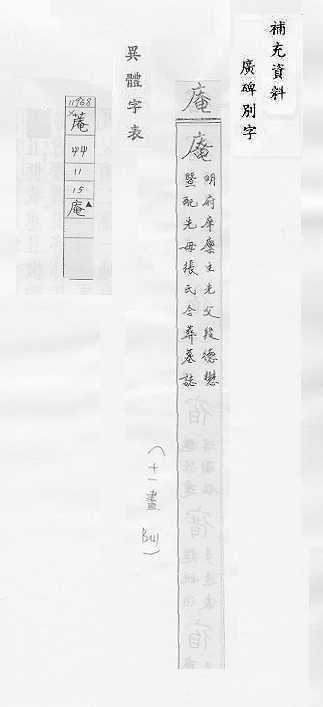 補充資料
廣碑別字
庵
庵
明府庠廩生先父段德懋
暨配先母張氏合葬墓誌
異體字表
(十一畫
11968
庵
44
11
15
庵▲